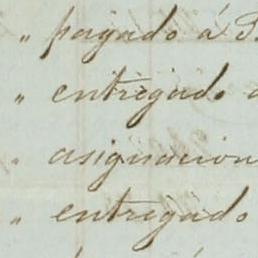 " pagado á
" entregado
" asignacion
" entregado